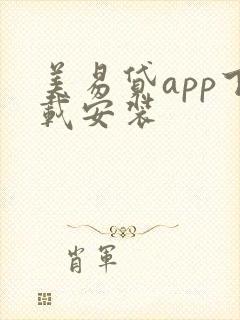 美易贷app下
载安装
肖军